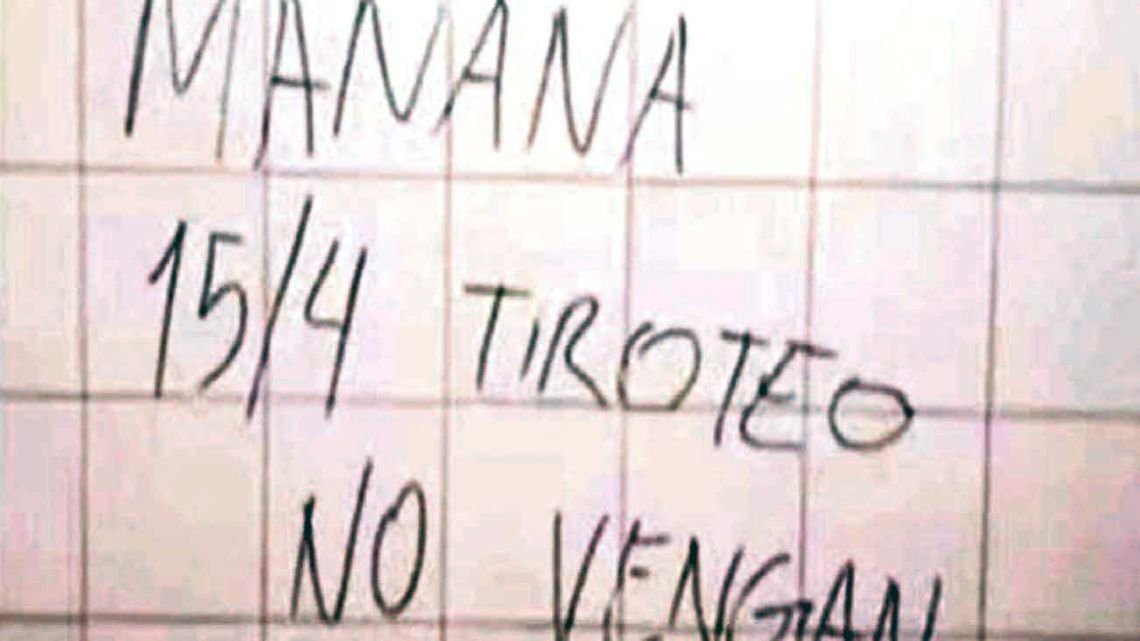 MANANA
15/4 TIROTEO
NO VENGAN